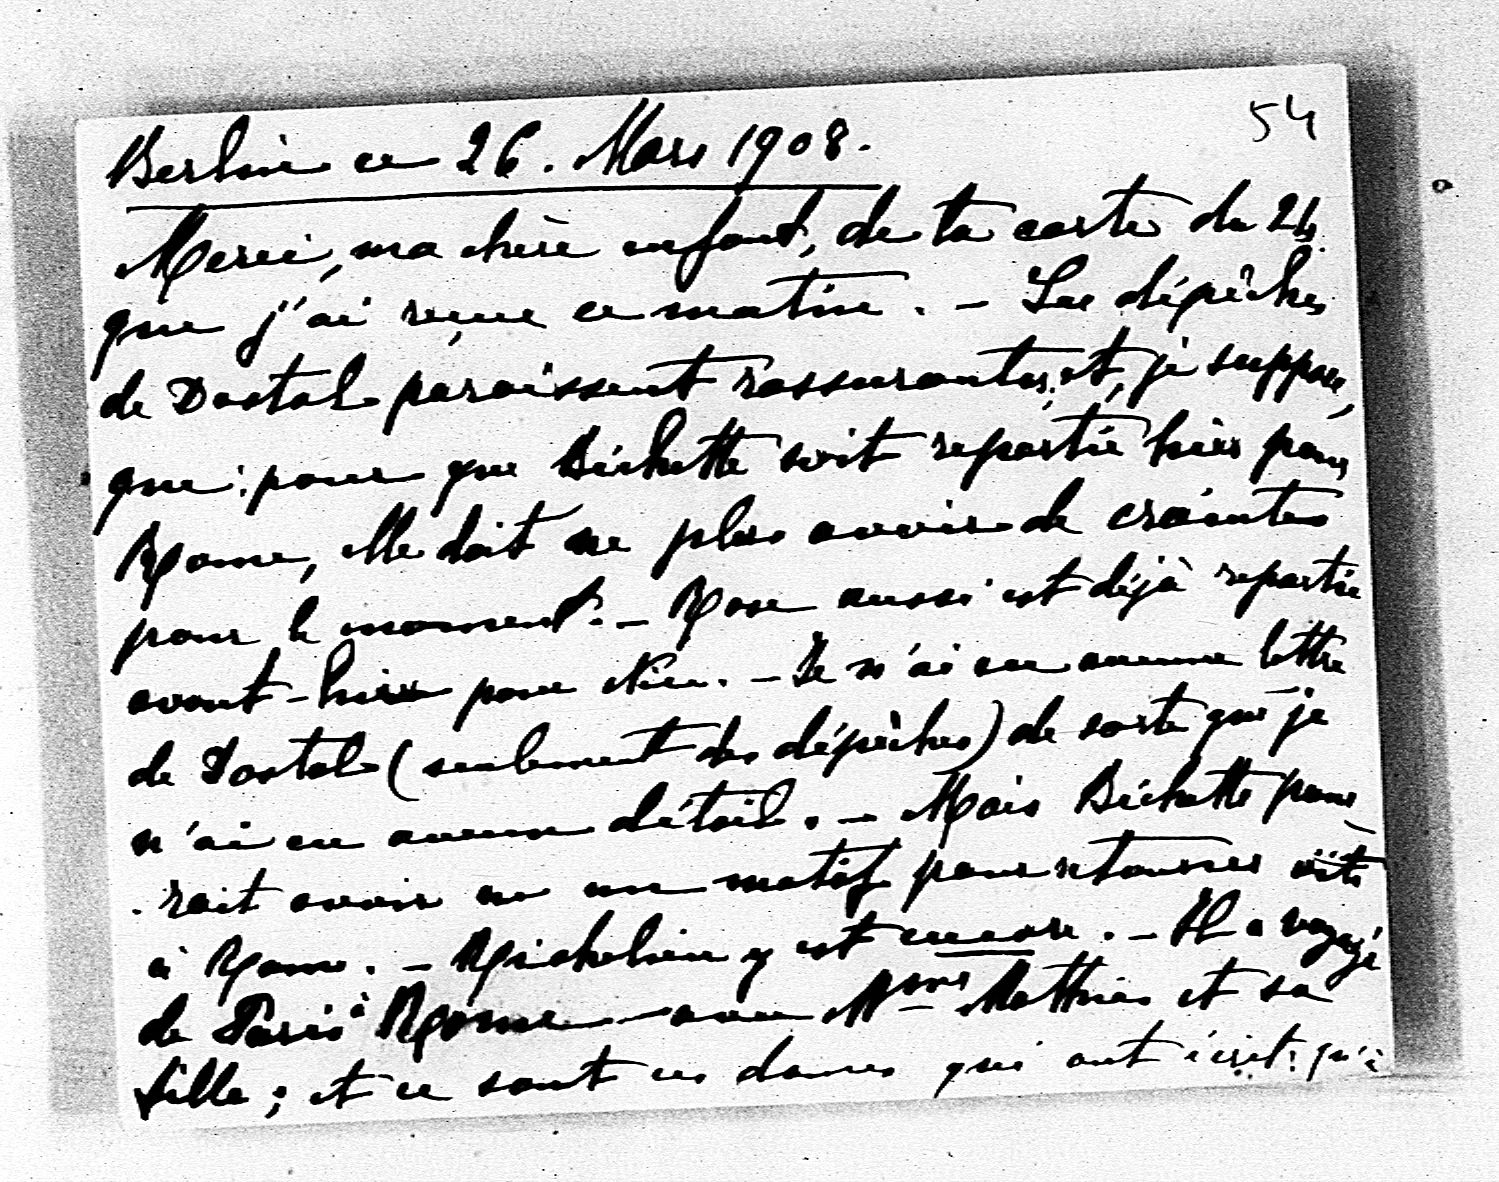 54
Berlin ce 26. Mars 1908.
Merci, ma chère enfant, de ta carte du 24.
que j'ai reçue ce matin. – Les dépêches
de Dostal paraissent rassurantes, et, je suppose,
que: pour que Bichette soit repartie hier pour
Rome, elle doit ne plus avoir de craintes
pour le moment. – Rose aussi est déjà repartie
avant-hier pour Nice. – Je n'ai eu aucune lettre
de Dostal (seulement des dépêches) de sorte que je
n'ai eu aucun détail. – Mais Bichette pour-
rait avoir eu un motif pour retourner vite
à Rome. – Richelieu y est encore. – Il a voyagé
de Paris à Rome avec Mme et sa
fille; et ce sont ces dames qui ont écrit: qu'à